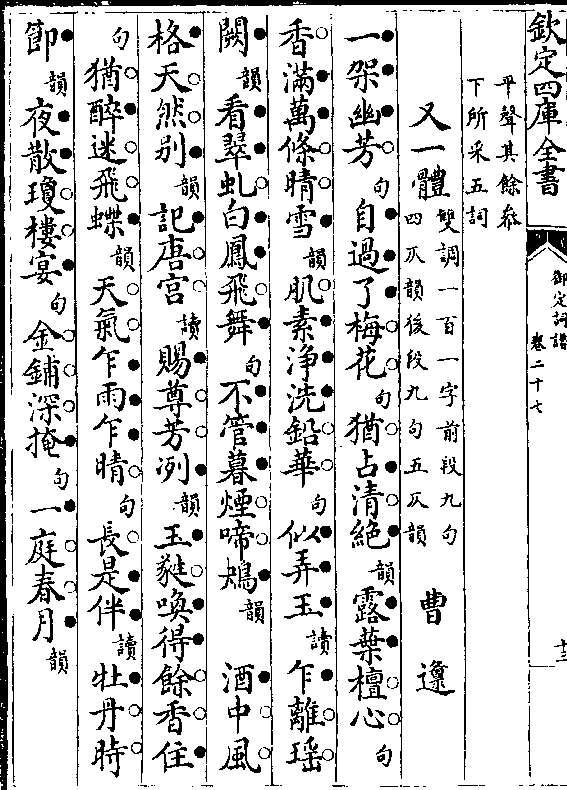 欽定四庫全書
御定詞譜
卷二十七
十三
平聲其餘參
下所采五詞
又一體 雙調一百一字前段九句
四仄韻後段九句五仄韻 曹邍
一架幽芳句自過了梅花句猶占清絶韻露葉檀心句
香滿萬條晴雪韻肌素淨洗鉛華句似弄玉讀乍離瑶
闕韻看翠虬白鳳飛舞句不管暮煙啼鴂韻酒中風
格天然别韻記唐宮讀賜尊芳冽韻玉蕤喚得餘香住
句猶醉迷飛蝶韻天氣乍雨乍晴句長是伴讀牡丹時
節韻夜散瓊樓宴句金鋪深掩句一庭春月韻